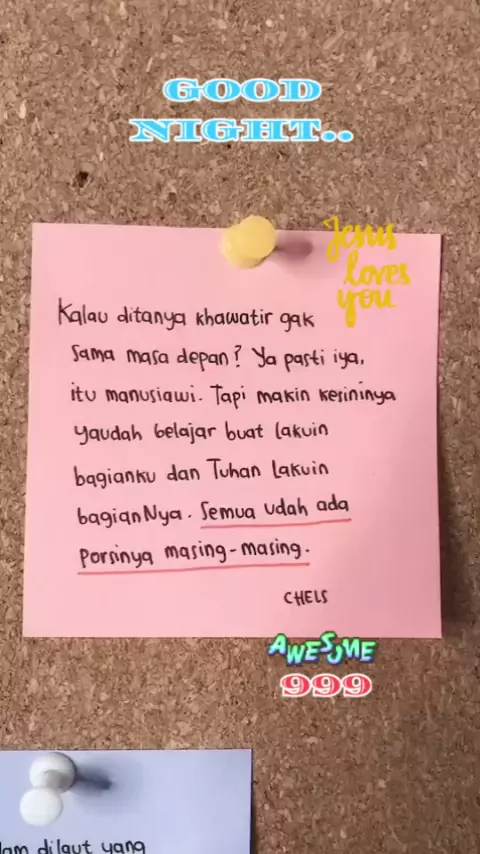 GOOD
NIGHT..
Jesus
loves
you
Kalau ditanya khawatir gak
sama masa depan? Ya pasti iya,
itu manusiawi. Tapi makin kesininya
yaudah belajar buat lakuin
bagianku dan Tuhan Lakuin
bagianNya. Semua udah ada
porsinya masing-masing.
CHELS
AWESOME
999
dilaut yang